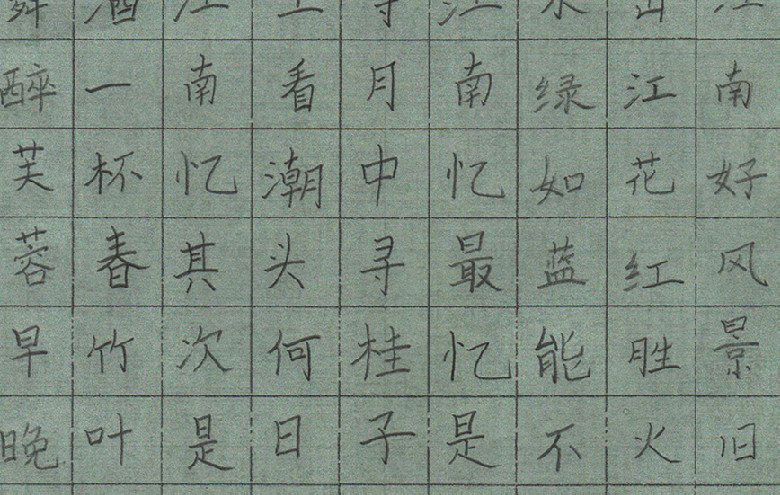 江南好风景旧
出江花红胜火
水绿如蓝能不
江南忆最忆是
寺月中寻桂子
上看潮头何日
江南忆其次是
酒一杯春竹叶
舞醉芙蓉早晚